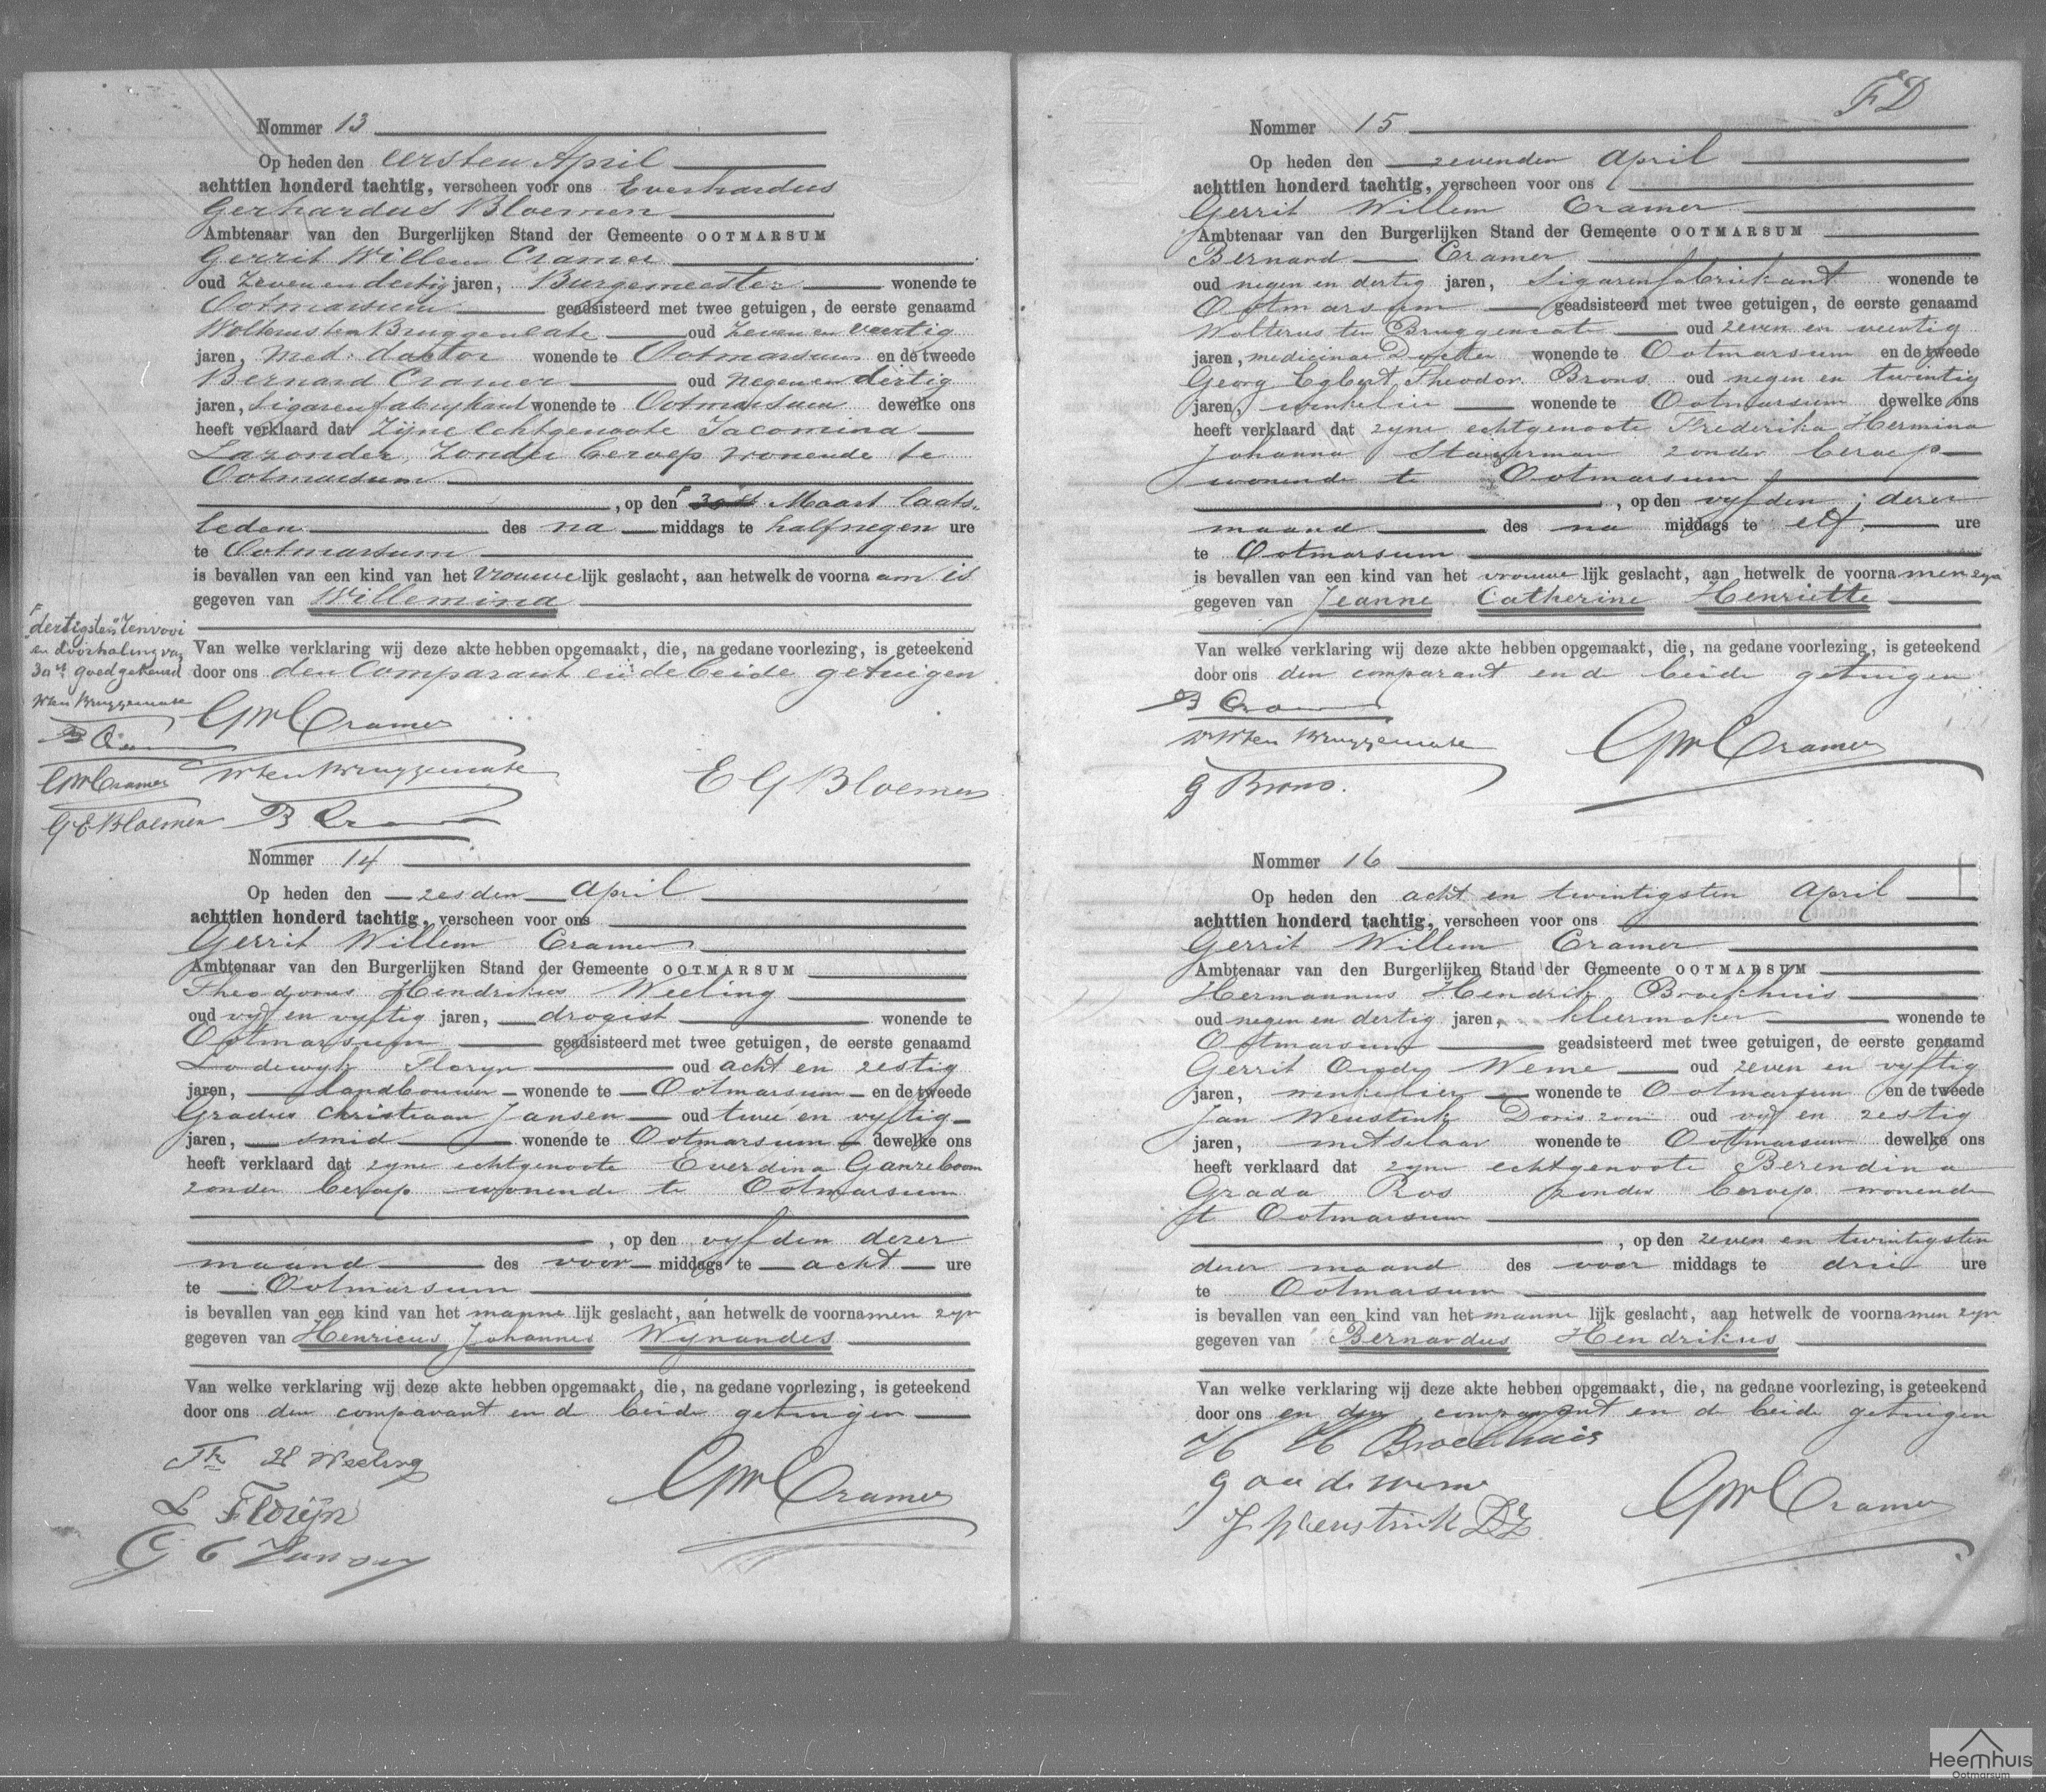 Nommer 13
Op heden den eersten April
achttien honderd tachtig, verscheen voor ons Everhardus
Gerhardus Bloemen
Ambtenaar van den Burgerlijken Stand der Gemeente OOTMARSUM
Gerrit Willem Cramer
oud zeven en dertig jaren, Burgemeester wonende te
Ootmarsum geadsisteerd met twee getuigen, de eerste genaamd
Wolterus ten Bruggencate oud zeven en veertig
jaren, med: doctor wonende te Ootmarsum en de tweede
Bernard Cramer oud negen en dertig
jaren, Sigarenfabrykant wonende te Ootmarsum dewelke ons
heeft verklaard dat zijne echtgenoote Jacomina
Lazonder, zonder beroep wonende te
Ootmarsum
, op den 30st Maart laats-
leden des na middags te half negen ure
te Ootmarsum
is bevallen van een kind van het vrouwelijk geslacht, aan hetwelk de voornaam is
gegeven van Willemina
"dertigsten" renvooi
en doorhaling van
30st goedgekeurd
W ten Bruggencate
B Cramer
GW Cramer
G E Bloemen
Van welke verklaring wij deze akte hebben opgemaakt, die, na gedane voorlezing, is geteekend
door ons den Comparant en de beide getuigen
GW Cramer
W ten Bruggencate
E G Bloemen
B Cramer
Nommer 14
Op heden den zesden April
achttien honderd tachtig, verscheen voor ons
Gerrit Willem Cramer
Ambtenaar van den Burgerlijken Stand der Gemeente OOTMARSUM
Theodorus Hendrikus Weeling
oud vyf en vyftig jaren, drogist wonende te
Ootmarsum geadsisteerd met twee getuigen, de eerste genaamd
Lodewyk Floryn oud acht en zestig
jaren, landbouwer wonende te Ootmarsum en de tweede
Gradus Christiaan Jansen oud twee en vyftig
jaren, smid wonende te Ootmarsum dewelke ons
heeft verklaard dat zyne echtgenoote Everdina Ganzeboom
zonder beroep wonende te Ootmarsum
, op den vyfden dezer
maand des voor middags te acht ure
te Ootmarsum
is bevallen van een kind van het mannelijk geslacht, aan hetwelk de voornamen zyn
gegeven van Henricus Johannes Wynandes
Van welke verklaring wij deze akte hebben opgemaakt, die, na gedane voorlezing, is geteekend
door ons den comparant en d beide getuigen
Th H Weeling
GW Cramer
L Florijn
G C Jansen
FD
Nommer 15
Op heden den zevenden April
achttien honderd tachtig, verscheen voor ons
Gerrit Willem Cramer
Ambtenaar van den Burgerlijken Stand der Gemeente OOTMARSUM
Bernard Cramer
oud negen en dertig jaren, Sigarenfabriekant wonende te
Ootmarsum geadsisteerd met twee getuigen, de eerste genaamd
Wolterus ten Bruggencate oud zeven en veertig
jaren, medicinae Docter wonende te Ootmarsum en de tweede
Georg Egbert Theodor Brons oud negen en twintig
jaren, winkelier wonende te Ootmarsum dewelke ons
heeft verklaard dat zyne echtgenoote Frederika Hermina
Johanna Stagerman zonder beroep
wonende te Ootmarsum
, op den vyfden dezer
maand des na middags te elf ure
te Ootmarsum
is bevallen van een kind van het vrouwelijk geslacht, aan hetwelk de voornamen zyn
gegeven van Jeanne Catherine Henriette
Van welke verklaring wij deze akte hebben opgemaakt, die, na gedane voorlezing, is geteekend
door ons den comparant en d beide getuigen
B Cramer
W ten Bruggencate
GW Cramer
G Brons.
Nommer 16
Op heden den acht en twintigsten April
achttien honderd tachtig, verscheen voor ons
Gerrit Willem Cramer
Ambtenaar van den Burgerlijken Stand der Gemeente OOTMARSUM
Hermannus Hendrik Broekhuis
oud negen en dertig jaren, kleermaker wonende te
Ootmarsum geadsisteerd met twee getuigen, de eerste genaamd
Gerrit Oude Weme oud zeven en vyftig
jaren, winkelier wonende te Ootmarsum en de tweede
Jan Weustink Doriszoon oud vyf en zestig
jaren, metselaar wonende te Ootmarsum dewelke ons
heeft verklaard dat zyne echtgenoote Berendina
Grada Ros zonder beroep wonende
te Ootmarsum
, op den zeven en twintigsten
dezer maand des voor middags te drie ure
te Ootmarsum
is bevallen van een kind van het mannelijk geslacht, aan hetwelk de voornamen zyn
gegeven van Bernardus Hendrikus
Van welke verklaring wij deze akte hebben opgemaakt, die, na gedane voorlezing, is geteekend
door ons en den comparant en d beide getuigen
H H Broekhuis
G oude weme
GW Cramer
J Weustink Dz
Heemhuis
Ootmarsum